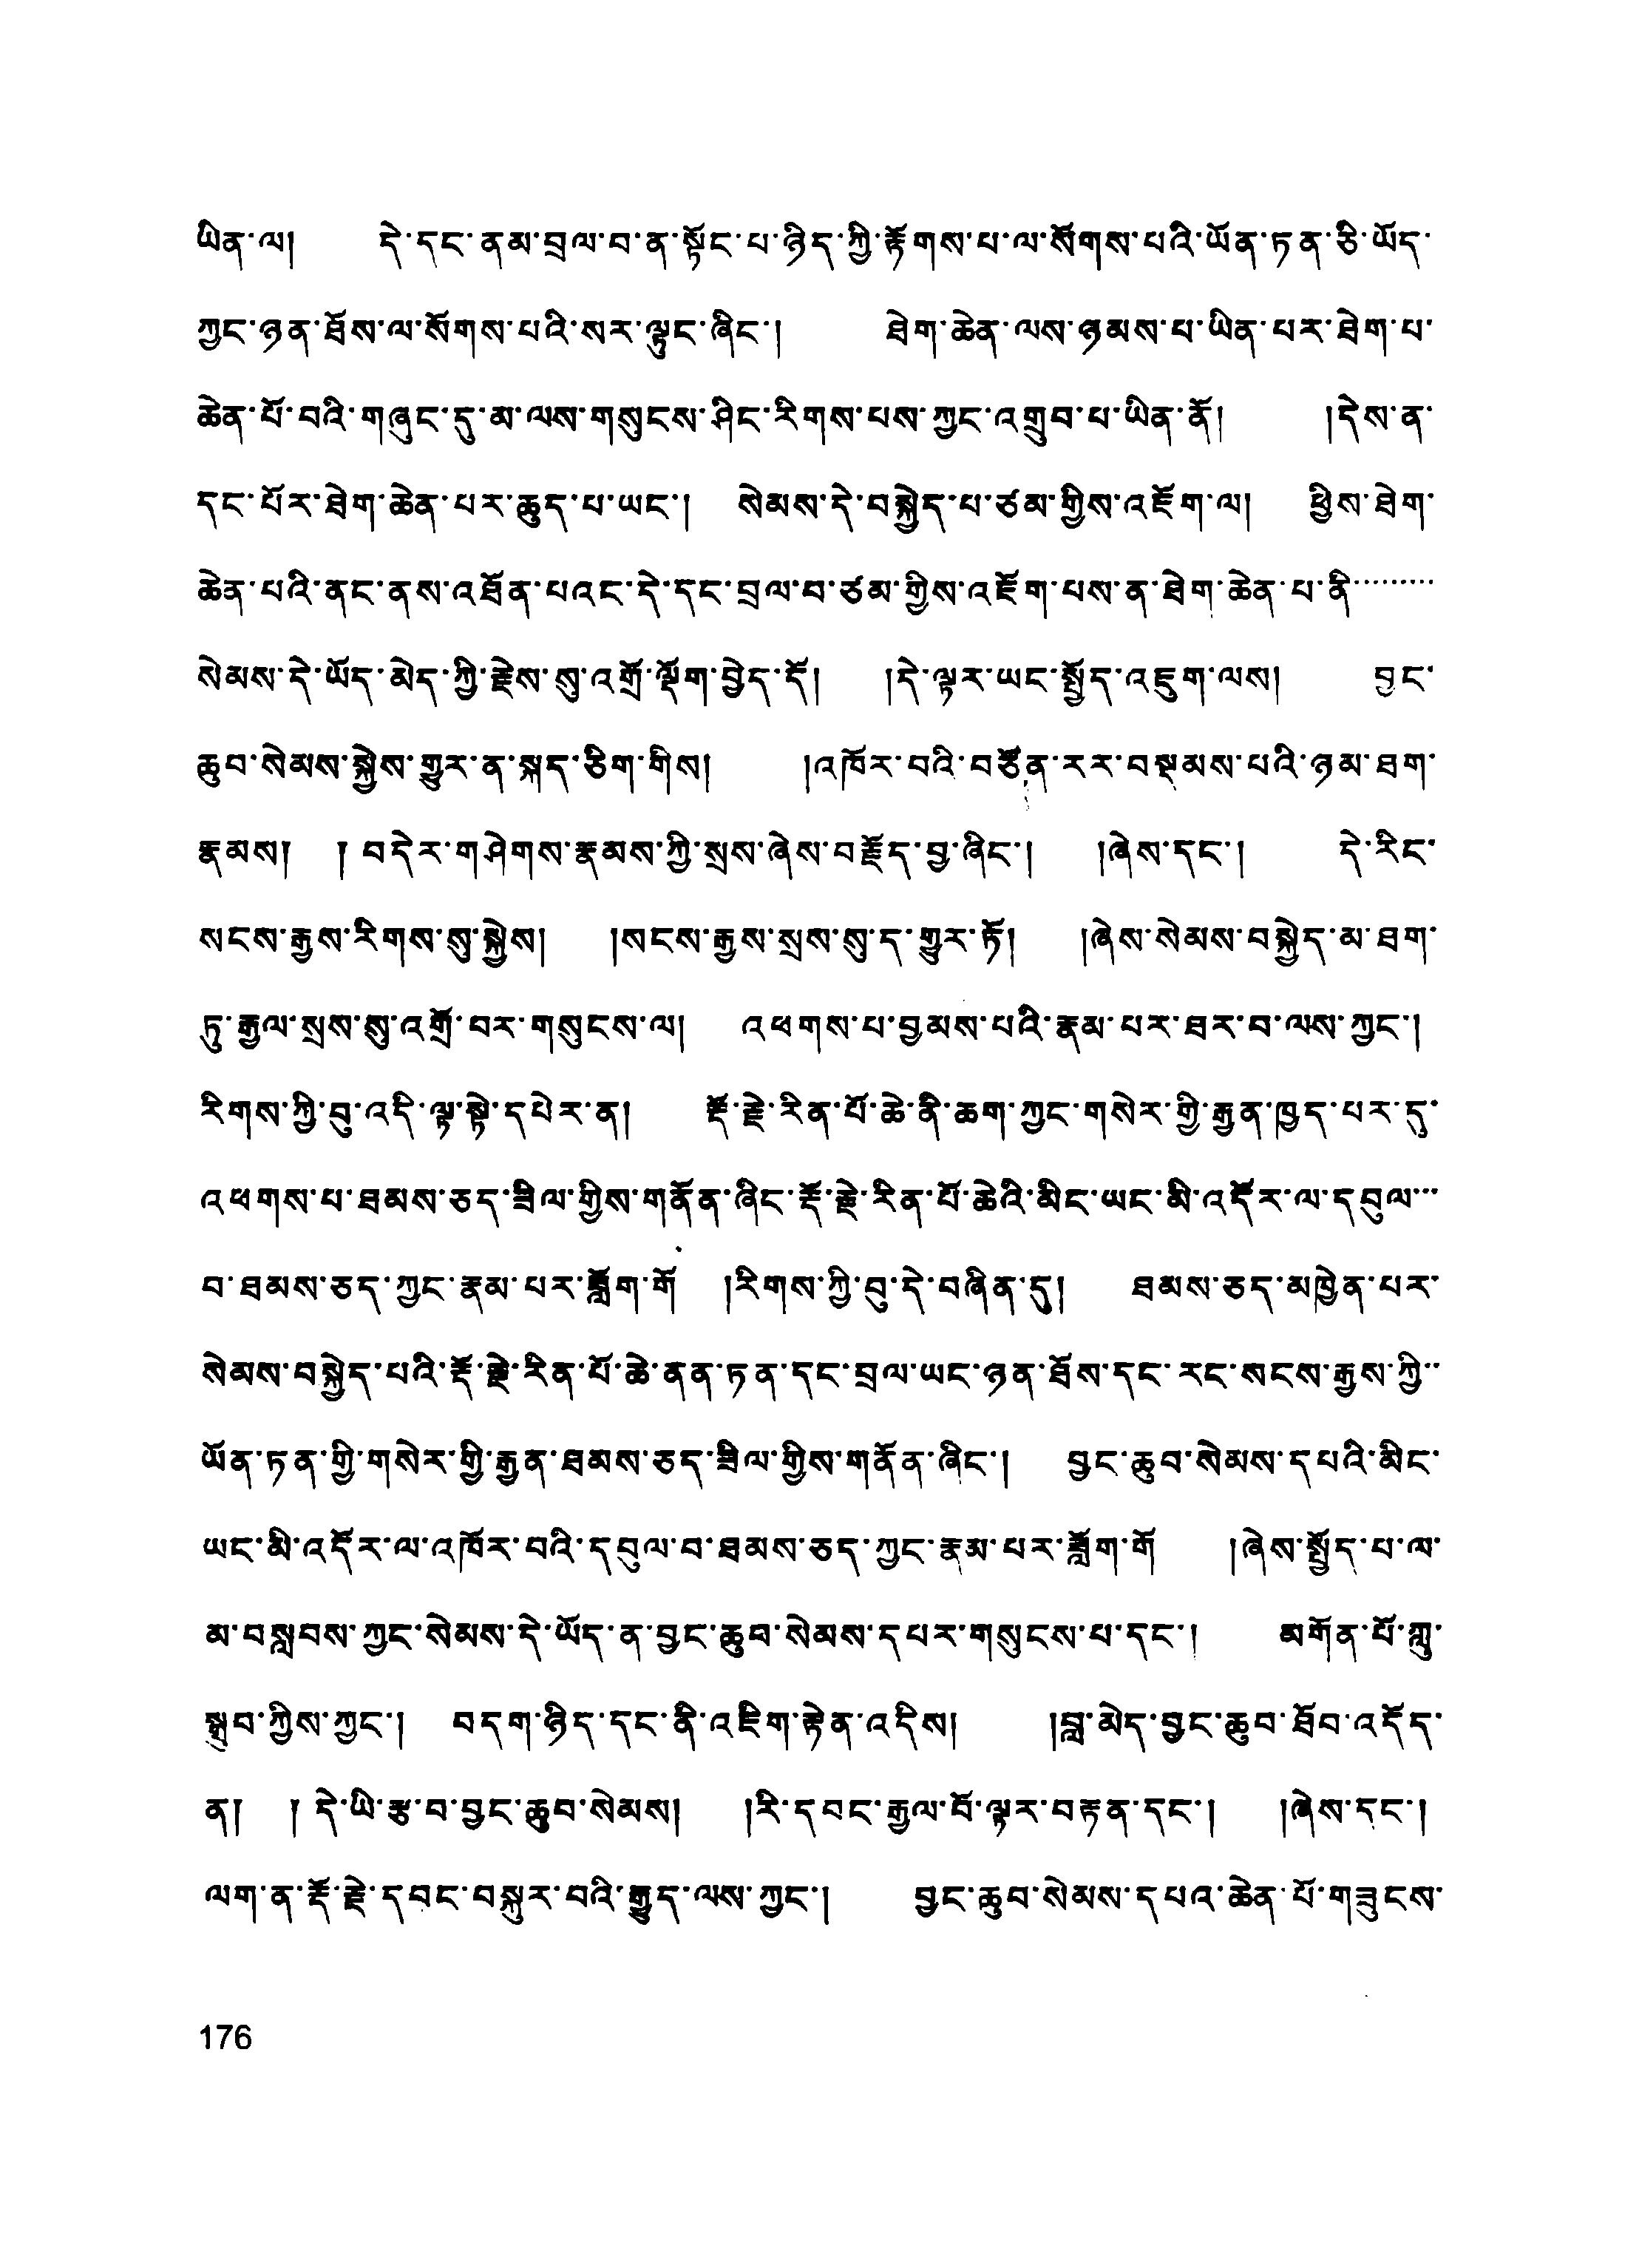 ཡིན་ལ། དེ་དང་ནམ་བྲལ་བ་ན་སྟོང་པ་ཉིད་ཀྱི་རྟོགས་པ་ལ་སོགས་པའི་ཡོན་ཏན་ཅི་ཡོད་
ཀྱང་ཉན་ཐོས་ལ་སོགས་པའི་སར་ལྟུང་ཞིང་། ཐེག་ཆེན་ལས་ཉམས་པ་ཡིན་པར་ཐེག་པ་
ཆེན་པོ་བའི་གཞུང་དུ་མ་ལས་གསུངས་ཤིང་རིགས་པས་ཀྱང་འགྲུབ་པ་ཡིན་ནོ། །དེས་ན་
དང་པོར་ཐེག་ཆེན་པར་ཆུད་པ་ཡང་། སེམས་དེ་བསྐྱེད་པ་ཙམ་གྱིས་འཇོག་ལ། ཕྱིས་ཐེག་
ཆེན་པའི་ནང་ནས་འཐོན་པའང་དེ་དང་བྲལ་བ་ཙམ་གྱིས་འཇོག་པས་ན་ཐེག་ཆེན་པ་ནི་........
སེམས་དེ་ཡོད་མེད་ཀྱི་རྗེས་སུ་འགྲོ་ལྡོག་བྱེད་དོ། །དེ་ལྟར་ཡང་སྤྱོད་འཇུག་ལས། བྱང་
ཆུབ་སེམས་སྐྱེས་གྱུར་ན་སྐད་ཅིག་གིས། །འཁོར་བའི་བཙོན་རར་བསྡམས་པའི་ཉམ་ཐག་
རྣམས། །བདེར་གཤེགས་རྣམས་ཀྱི་སྲས་ཞེས་བརྗོད་བྱ་ཞིང་། །ཞེས་དང་། དེ་རིང་
སངས་རྒྱས་རིགས་སུ་སྐྱེས། །སངས་རྒྱས་སྲས་སུ་ད་གྱུར་ཏོ། །ཞེས་སེམས་བསྐྱེད་མ་ཐག་
ཏུ་རྒྱལ་སྲས་སུ་འགྲོ་བར་གསུངས་ལ། འཕགས་པ་བྱམས་པའི་རྣམ་པར་ཐར་བ་ལས་ཀྱང་།
རིགས་ཀྱི་བུ་འདི་ལྟ་སྟེ་དཔེར་ན། རྡོ་རྗེ་རིན་པོ་ཆེ་ནི་ཆག་ཀྱང་གསེར་གྱི་རྒྱན་ཁྱད་པར་དུ་
འཕགས་པ་ཐམས་ཅད་ཟིལ་གྱིས་གནོན་ཞིང་རྡོ་རྗེ་རིན་པོ་ཆེའི་མིང་ཡང་མི་འདོར་ལ་དབུལ་..
བ་ཐམས་ཅད་ཀྱང་རྣམ་པར་ཟློག་གོ །རིགས་ཀྱི་བུ་དེ་བཞིན་དུ། ཐམས་ཅད་མཁྱེན་པར་
སེམས་བསྐྱེད་པའི་རྡོ་རྗེ་རིན་པོ་ཆེ་ནན་ཏན་དང་བྲལ་ཡང་ཉན་ཐོས་དང་རང་སངས་རྒྱས་ཀྱི་.
ཡོན་ཏན་གྱི་གསེར་གྱི་རྒྱན་ཐམས་ཅད་ཟིལ་གྱིས་གནོན་ཞིང་། བྱང་ཆུབ་སེམས་དཔའི་མིང་
ཡང་མི་འདོར་ལ་འཁོར་བའི་དབུལ་བ་ཐམས་ཅད་ཀྱང་རྣམ་པར་ཟློག་གོ །ཞེས་སྤྱོད་པ་ལ་
མ་བསླབས་ཀྱང་སེམས་དེ་ཡོད་ན་བྱང་ཆུབ་སེམས་དཔར་གསུངས་པ་དང་། མགོན་པོ་ཀླུ་
སྒྲུབ་ཀྱིས་ཀྱང་། བདག་ཉིད་དང་ནི་འཇིག་རྟེན་འདིས། །བླ་མེད་བྱང་ཆུབ་ཐོབ་འདོད་
ན། །དེ་ཡི་རྩ་བ་བྱང་ཆུབ་སེམས། །རི་དབང་རྒྱལ་པོ་ལྟར་བརྟན་དང་། །ཞེས་དང་།
ལག་ན་རྡོ་རྗེ་དབང་བསྐུར་བའི་རྒྱུད་ལས་ཀྱང་། བྱང་ཆུབ་སེམས་དཔའ་ཆེན་པོ་གཟུངས་
176